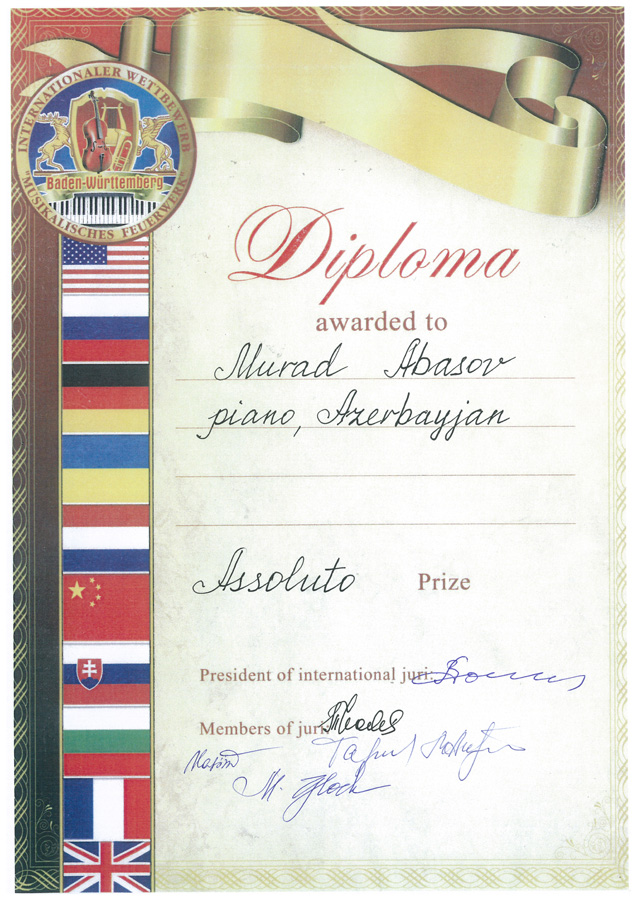 INTERNATIONALER WETTBEWERB
Baden-Württemberg
"MUSIKALISCHES FEUERWERK"
Diploma
awarded to
Murad Abasov
piano, Azerbayjan
Assoluto Prize
President of international juri:
Members of juri: